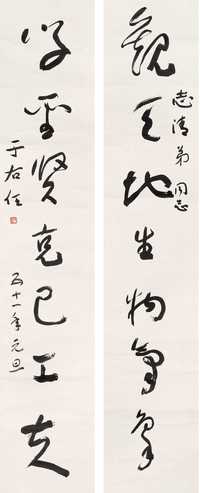 觀天地生物氣象
志清弟同志
學聖賢克己工夫
五十一年元旦
于右任